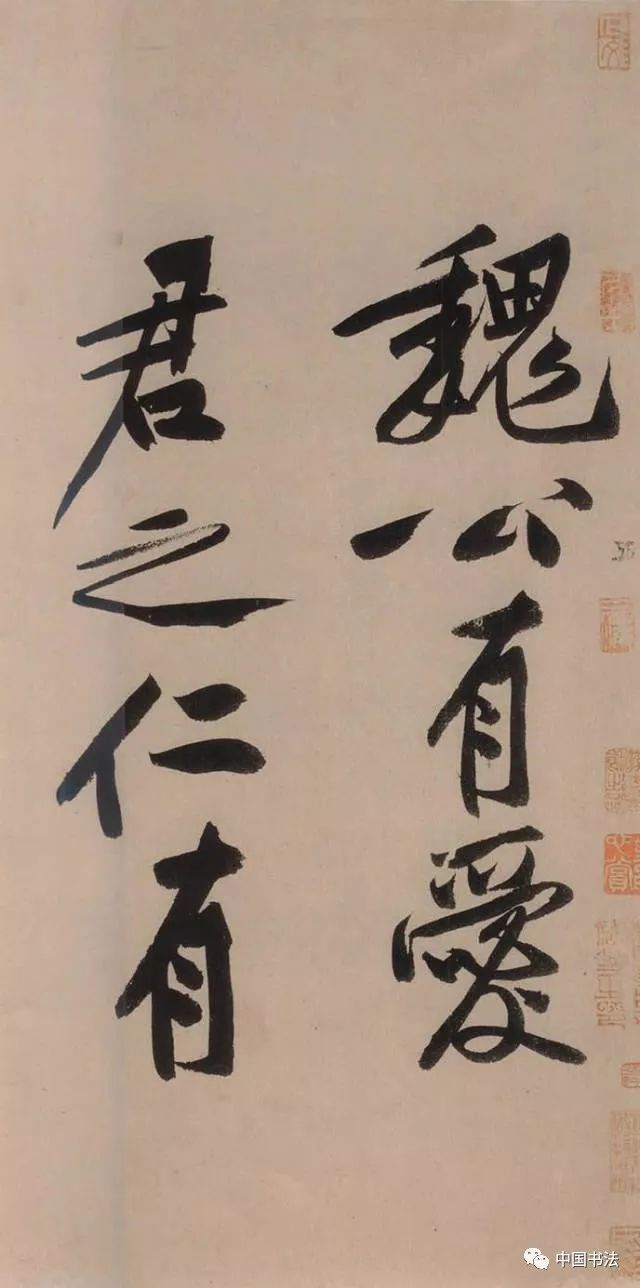 魏公有愛
君之仁有
中国书法